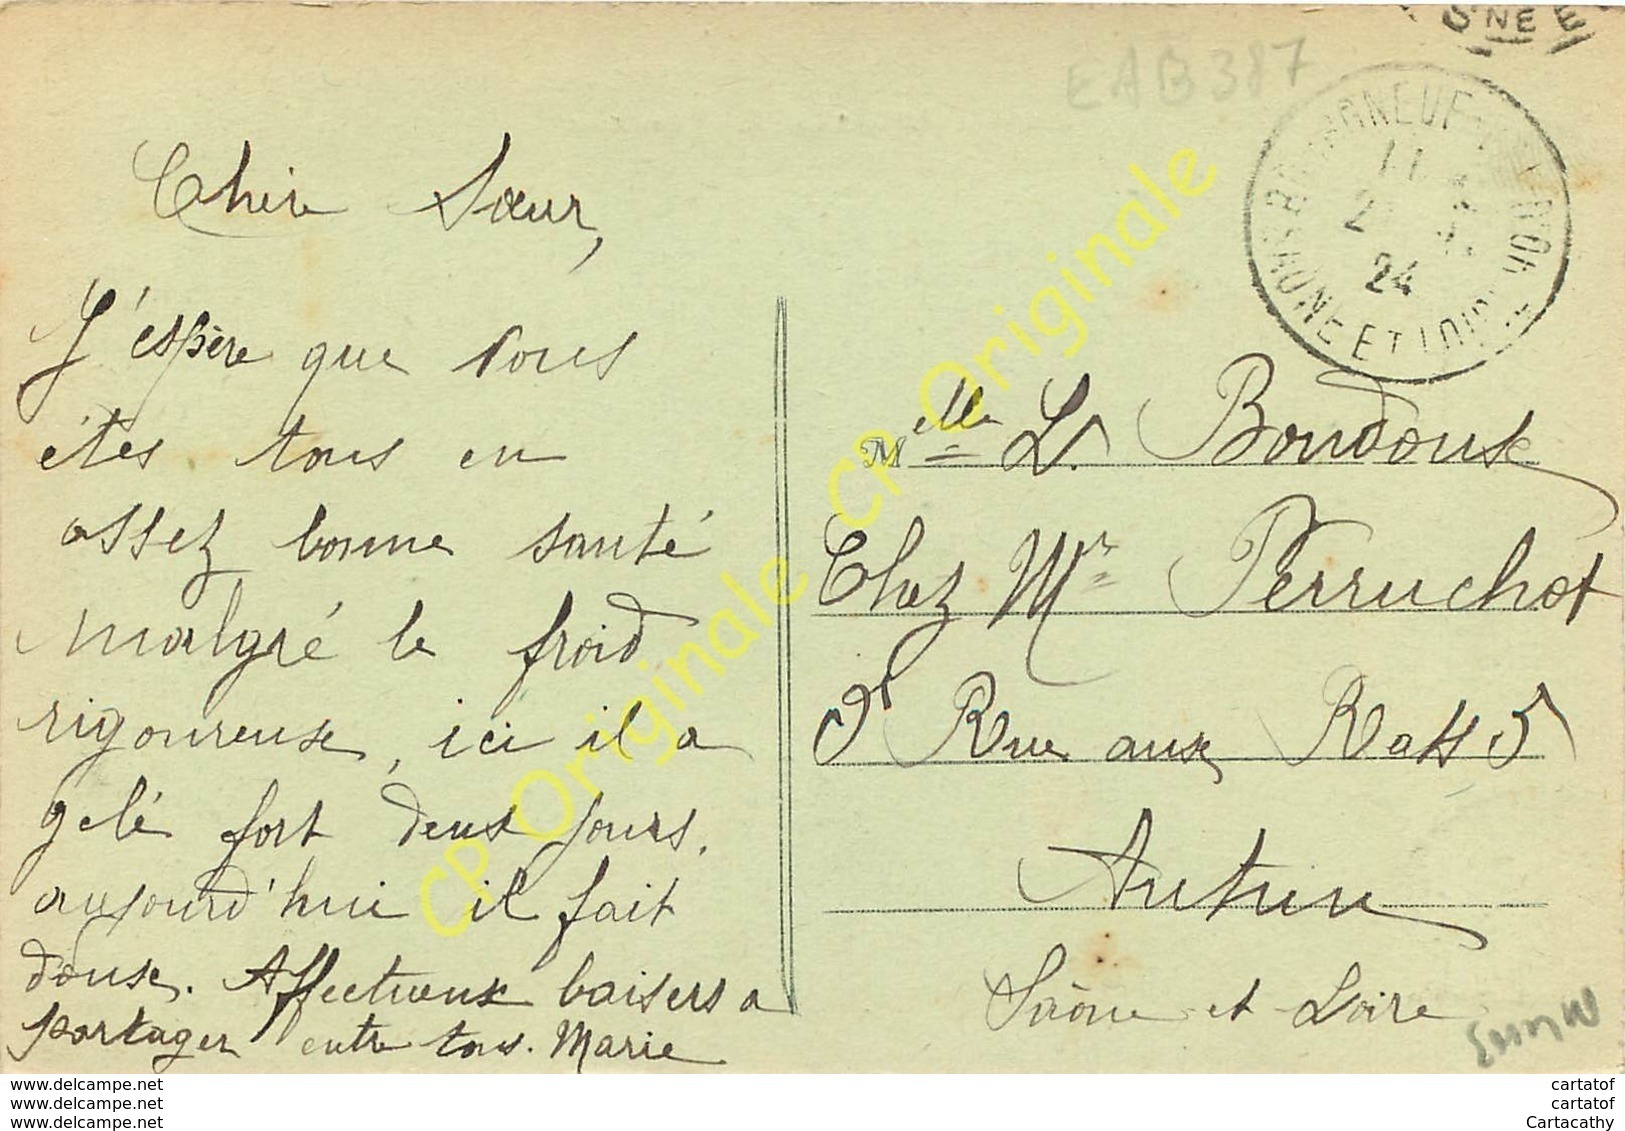 EAB387
Chère Sœur,
J'espère que vous
êtes tous en
assez bonne santé
malgré le froid
rigoureuse, ici il a
gelé fort deux jours,
aujourd'hui il fait
douse. Affectueux baisers a
partager entre tous. Marie
24
SAONE ET LOIRE
Melle L. Boudoux
Chez Mr Perruchot
5 Rue aux Rats 5
Autun
Saône et Loire
CP Originale CP Originale CP Originale
www.delcampe.net
www.delcampe.net
www.delcampe.net
cartatof
cartatof
Cartacathy